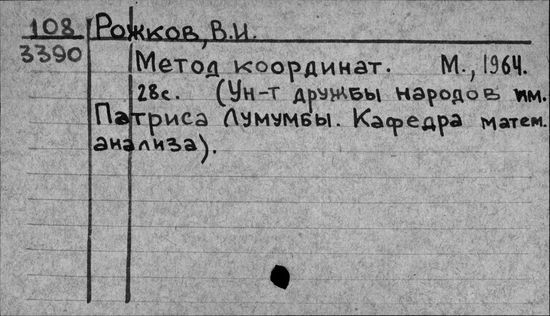 108 Рожков, В.И.
3390 Метод координат. М., 1964.
28с. (Ун-т дружбы народов им.
Патриса Лумумбы. Кафедра матем.
анализа).